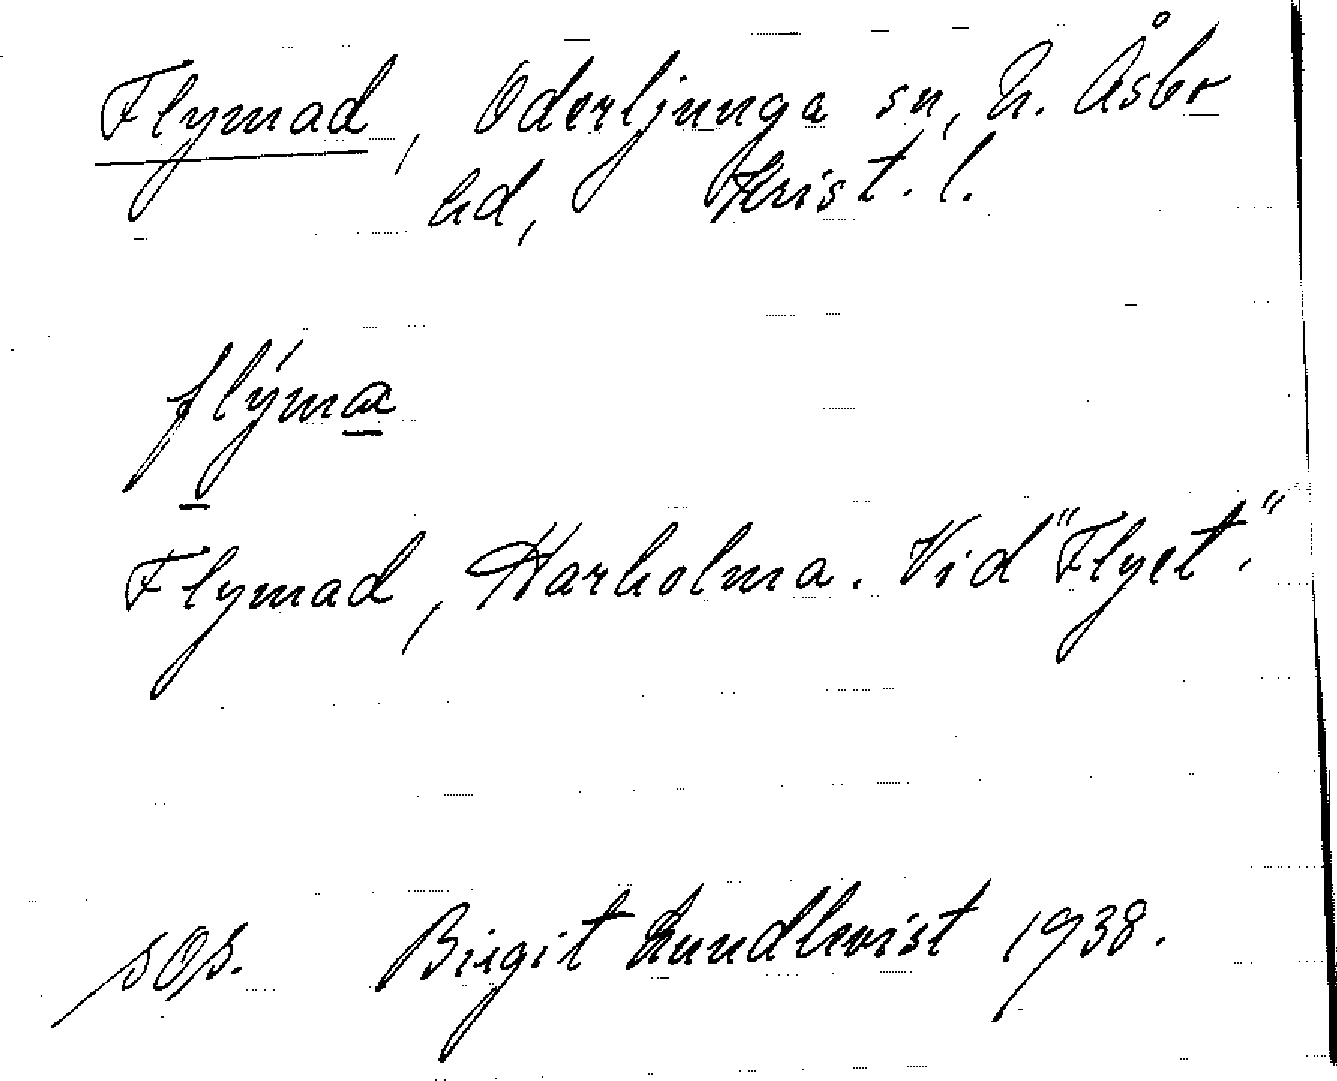 Flymad, Oderljunga sn, N. Åsbo
hd, Krist. l.
flýma
Flymad, Harholma. Vid "Flyet."
sOs. Birgit Lundkvist 1938.